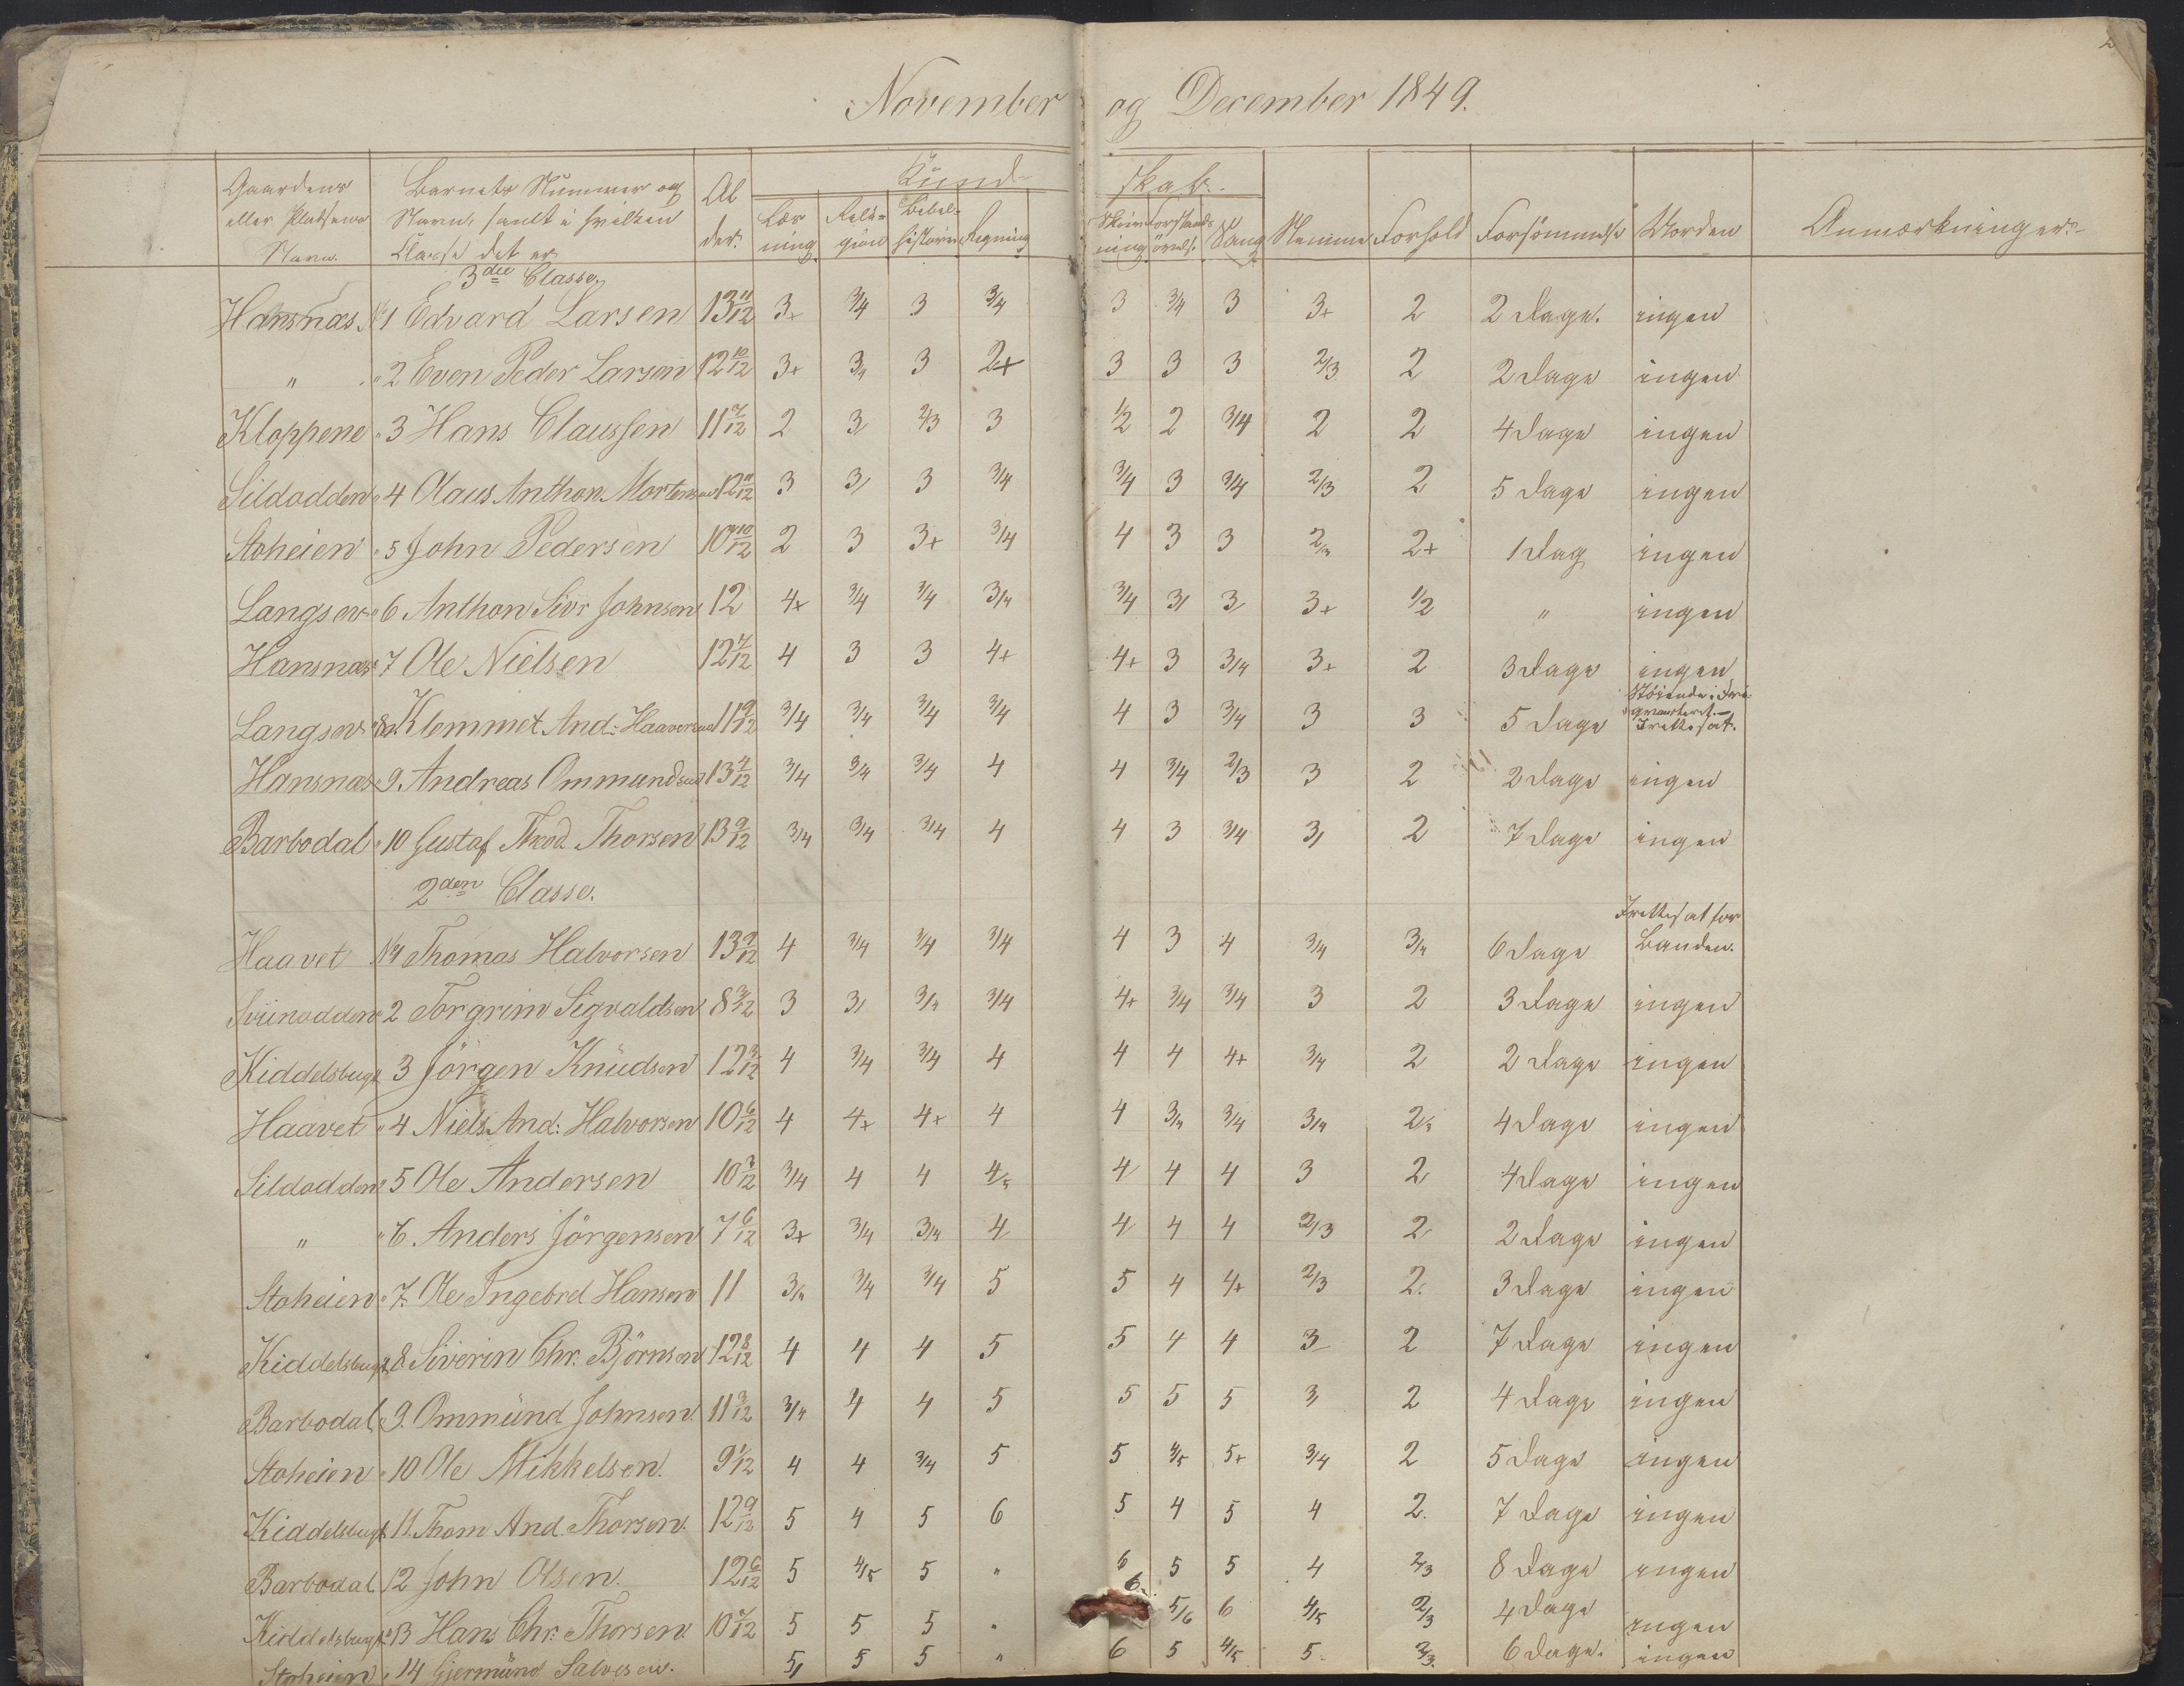 2
November og December 1849.
Gaardens eller Pladsens Navn. | Barnets Nummer og Navn, samt i hvilken Classe det er | Alder. | Kundskab. | Nemme | Forhold | Forsömmelse | Vorden | Anmærkninger.
Læsning | Religion | Bibelhistorie | Regning | Skrivning | Forstandsövelse | Sang
3die Classe.
Hansnæs No 1 Edvard Larsen 13 11/12 3+ 3/4 3 3/4 3 3/4 3 3+ 2 2 Dage. ingen
" " 2 Even Peder Larsen 12 10/12 3+ 3/4 3 2+ 3 3 3 2/3 2 2 Dage ingen
Kloppene " 3 Hans Claussen 11 7/12 2 3/ 2/3 3 1/2 2 3/4 2 2 4 Dage ingen
Sildodden " 4 Olaus Anthon Mortensen 12 11/12 3 3/ 3 3/4 3/4 3 3/4 2/3 2 5 Dage ingen
Stoheien " 5 John Pedersen 10 10/12 2 3 3+ 3/4 4 3 3 2/3 2+ 1 Dag ingen
Langsev " 6 Anthon Sivr Johnsen 12 4+ 3/4 3/4 3/4 3/4 3/ 3 3+ 1/2 " ingen
Hansnæs " 7 Ole Nielsen 12 7/12 4 3 3 4+ 4+ 3 3/4 3+ 2 3 Dage ingen
Langsev " 8 Klemmet And: Haavorsen 11 9/12 3/4 3/4 3/4 3/4 4 3 3/4 3 3 5 Dage Støiende i Friqvarteret. Irettesat.
Hansnæs " 9. Andreas Ommundsen 13 4/12 3/4 3/4 3/4 4 4 3/4 2/3 3 2 2 Dage ingen
Barbodal " 10 Gustaf Thod. Thorsen 13 9/12 3/4 3/4 3/4 4 4 3 3/4 3/ 2 7 Dage ingen
2den Classe.
Haavet No 1 Thomas Halvorsen 13 9/12 4 3/4 3/4 3/4 4 3 4 3/4 3/4 6 Dage Irettesat for Banden.
Sviinodden " 2 Torgrim Sigvaldsen 8 3/12 3 3/ 3/4 3/4 4+ 3/4 3/4 3 2 3 Dage ingen
Kiddelsbugt 3 Jörgen Knudsen 12 3/12 4 3/4 3/4 4 4 4 4+ 3/4 2 2 Dage ingen
Haavet " 4 Niels And: Halvorsen 10 6/12 4 4+ 4+ 4 4 3/4 3/4 3/4 2/3 4 Dage ingen
Sildodden " 5 Ole Andersen 10 3/12 3/4 4 4 4/5 4 4 4 3 2 4 Dage ingen
" " 6. Anders Jörgensen 7 6/12 3+ 3/4 3/4 4 4 4 4 2/3 2 2 Dage ingen
Stoheien " 7. Ole Ingebret Hansen 11 3/4 3/4 3/4 5 5 4 4+ 2/3 2. 3 Dage ingen
Kiddelsbugt " 8 Siverin Chr. Björnsen 12 8/12 4 4 4 5 5 4 4 3 2 7 Dage ingen
Barbodal " 9. Ommund Johnsen. 11 3/12 3/4 4 4 5 5 5 5 3/ 2 4 Dage ingen
Stoheien " 10 Ole Mikkelsen. 9 1/12 4 4 3/4 5 5 4/5 5+ 3/4 2 5 Dage ingen
Kiddelsbugt 11. Thom And. Thorsen. 12 9/12 5 4 5 6 5 4 5 4 2. 7 Dage ingen
Barbodal 12 John Olsen. 12 6/12 5 4/5 5 " 6 5 5 4 2/3 8 Dage ingen
Kiddelsbugt " 13 Hans Chr. Thorsen. 10 7/12 5 5 5 " 6. 5/6 6 4/5 2/3 4 Dage ingen
Stoheien " 14 Gjermund Salvesen. 5/ 5 5 " 6 5 4/5 5 2/3. 6 Dage. ingen